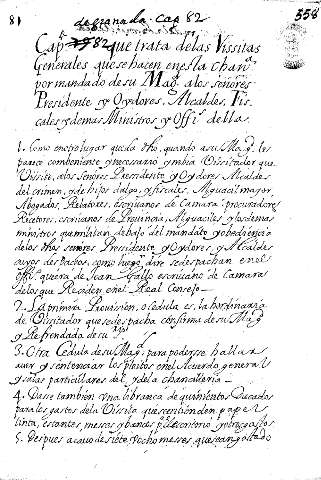 de granada. Cap 82
81
358
Cap.º 82 que trata de las Vissitas
Generales que se hacen en esta chan.ª
por mandado de su Mag.d a los señores
Presidente y Oydores, Alcaldes, Fis-
cales y demas Ministros y Offi.s della.
1. Como en otro lugar queda dho, quando a su Mag.d les
parece combeniente y necesario ymbia Vissitador que
Vissite, a los Señores Presidente y Oydores Alcaldes
del crimen, y de hijos dalgo, y fiscales, Alguacil mayor,
Abogados, Relatores, escrivanos de Camara, procuradores
Recetores, escrivanos de Provincia, Alguaciles y los demas
ministros que militan debajo del mandato y obediencia
de los dhos señores Presidente y Oydores, y Alcaldes
cuyos despachos, como luego dire se despachan en el
Offi.º que era de Juan Gallo escrivano de Camara
de los que Residen en el Real Consejo
2. La primera Provission, o cedula es, la hordinaria
de Vissitador que se despacha con firma de su Mag.d
y Refrendada de su
3. Otra Cedula de su Mag.d para poderse hallar
a ver y sentenciar los pleitos en el Acuerdo general
y salas particulares del y de la chancilleria
4. Dasse tambien una libranca de quinientos Ducados
para los gastos de la Vissita que se entienden papel
tinta, estantes, messas y bancos
5. Despues a cavo de siete, v ocho meses, que estan gastado